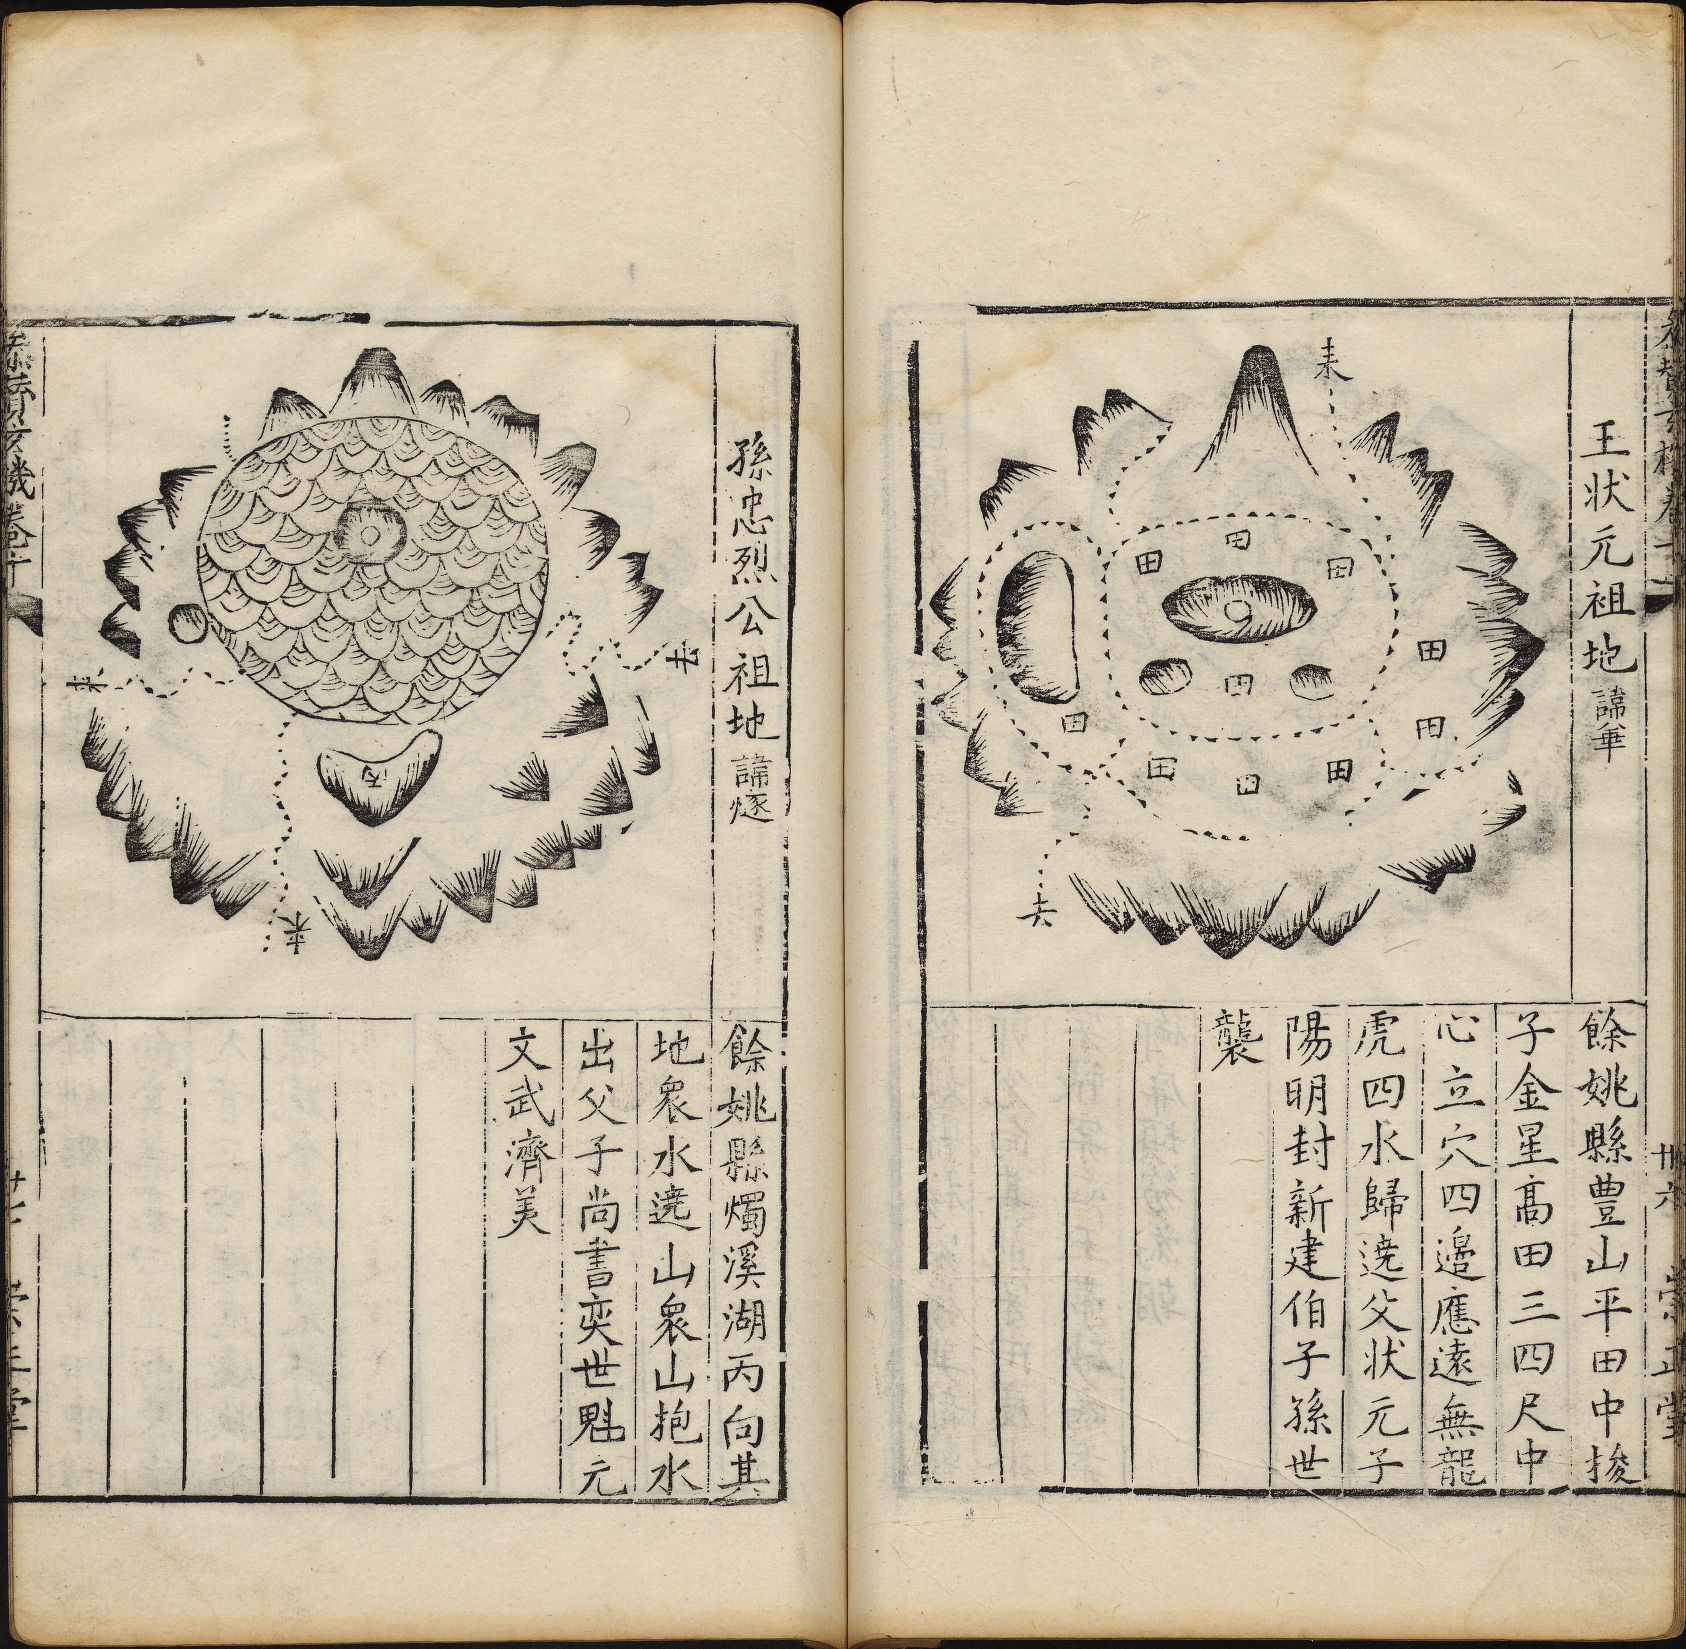 王狀元祖地 諱華
来
田
田
田
田
田
田
田
田
田
田
去
餘姚縣豊山平田中梭
子金星髙田三四尺中
心立穴四邉應逺無龍
虎四水歸遶父状元子
陽明封新建伯子孫世
襲
卅六
崇正堂
孫忠烈公祖地 諱燧
去
来
丙
来
餘姚縣燭溪湖丙向其
地衆水遶山衆山抱水
出父子尚書奕世魁元
文武濟美